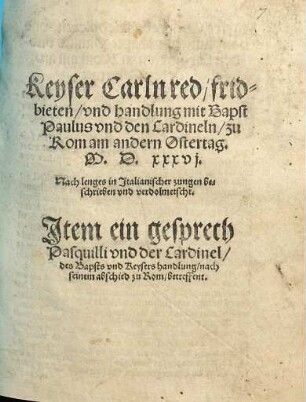 Keyser Carln red/frid-
bieten/vnd handlung mit Bapst
Paulus vnd den Cardineln/zu
Rom am andern Ostertag.
M. D. xxxvj.
Nach lenges in Jtalianischer zungen be-
schrieben vnd verdolmetscht.
Jtem ein gesprech
Pasquilli vnd der Cardinel/
des Bapsts vnd Keysers handlung/nach
seinem abschied zu Rom/betreffent.